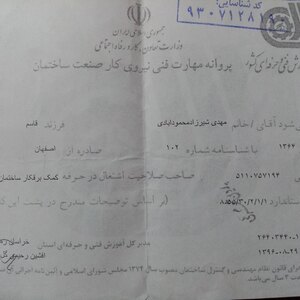 کد شناسایی:
۹۳۰۷۱۲۸۱
جمهوری اسلامی ایران
وزارت تعاون، کار و رفاه اجتماعی
فنی و حرفه‌ای کشور
پروانه مهارت فنی نیروی کار صنعت ساختمان
شود آقای / خانم مهدی شیرزادمحمودآبادی فرزند قاسم
۱۳۶۷ با شناسنامه شماره ۱۰۲ صادره از اصفهان
۵۱۱۰۷۵۷۱۹۴ صاحب صلاحیت اشتغال در حرفه کمک برقکار ساختمان
استاندارد ۸۵۵/۳۰/۲/۱/۱ (بر اساس توضیحات مندرج در پشت این
۲۶۴۰۳۴۴۰-۱ مدیر کل آموزش فنی و حرفه‌ای استان
۱۳۹۶-۰۸-۲۹ افشین رحیمی گل
قانون نظام مهندسی و کنترل ساختمان مصوب سال ۱۳۷۴ مجلس شورای اسلامی و آئین نامه اجرائی
۳ سال می باشد.